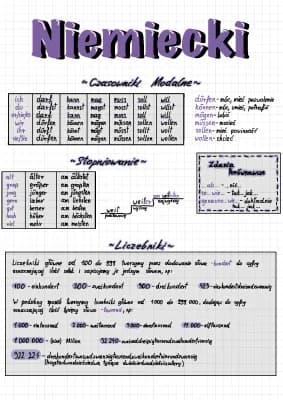 Niemiecki
~Czasowniki Modalne~
ich darf kann mag muss soll will
du darfst kannst magst musst sollst willst
er/sie/es darf kann mag muss soll will
wir dürfen können mögen müssen sollen wollen
ihr dürft könnt mögt müsst sollt wollt
sie/Sie dürfen können mögen müssen sollen wollen
dürfen - mieć pozwolenie
können - móc, umieć, potrafić
mögen - lubić
müssen - musieć
sollen - mieć powinność
wollen - chcieć
~Stopniowanie~
alt älter am ältesten
groß größer am größten
jung jünger am jüngsten
gern lieber am liebsten
gut besser am besten
hoch höher am höchsten
viel mehr am meisten
weit
weiter
Zdania
porównawcze
als
so... wie
genauso... wie
~Liczebniki~
Liczebniki główne od 100 do 999 tworzymy przez dodawanie słowa -hundert do cyfry
oznaczającej ilość setek i zapisujemy je jednym słowem, np:
100 - einhundert 200 - zweihundert 900 - neunhundert
W podobny sposób tworzymy liczebniki główne od 1000 do 999 000, dodając do cyfry
oznaczającej ilość tysięcy słowo -tausend, np:
1 000 - eintausend 11 000 - elftausend
1 000 000 - (eine) Million